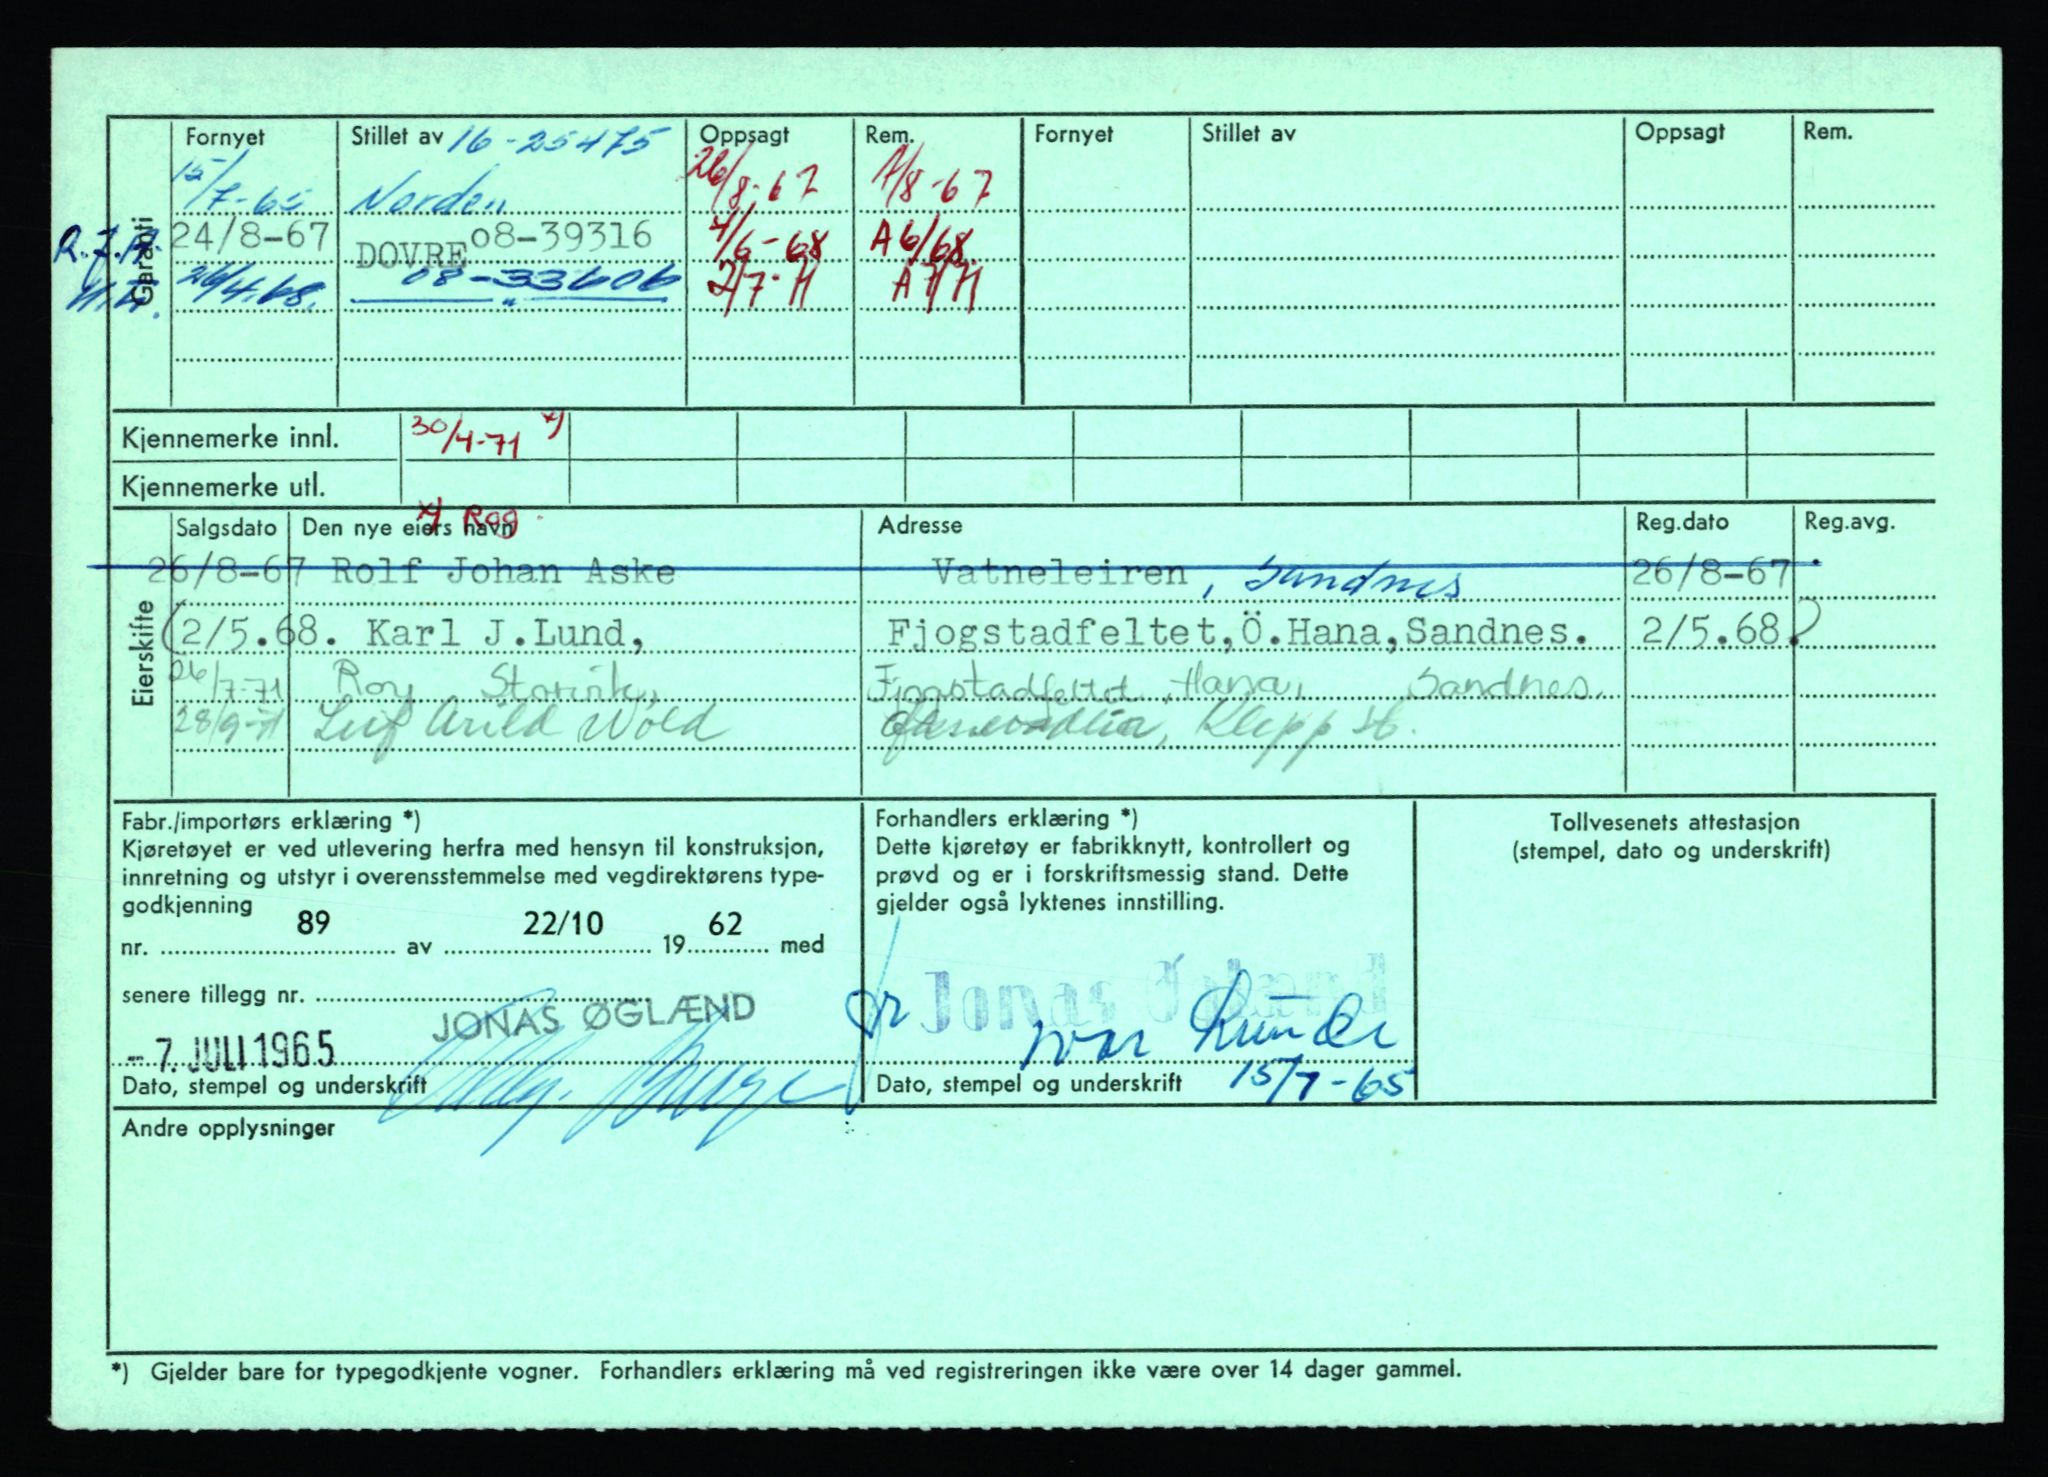 Fornyet Stillet av 16-25475 Oppsagt Rem. Fornyet Stillet av Oppsagt Rem.
Garanti
15/7-65 Norden 26/8-67 1/8-67
24/8-67 DOVRE 08-39316 4/6-68 A 6/68
26/4.68. 08-33606 2/7-71 A 7/71
"
Kjennemerke innl. 30/4-71 x)
Kjennemerke utl.
x) Rog.
Eierskifte
Salgsdato Den nye eiers navn Adresse Reg.dato Reg.avg.
26/8-67 Rolf Johan Aske Vatneleiren, Sandnes 26/8-67
(2/5.68. Karl J.Lund, Fjogstadfeltet,Ö.Hana,Sandnes. 2/5.68.)
26/7-71 Roy Fjogstadfeltet, Hana, Sandnes.
28/9-71 Leif Arild Wold Klepp st.
Fabr./importørs erklæring *)
Kjøretøyet er ved utlevering herfra med hensyn til konstruksjon,
innretning og utstyr i overensstemmelse med vegdirektørens type-
godkjenning
nr. 89 av 22/10 19 62 med
senere tillegg nr.
JONAS ØGLÆND
- 7. JULI 1965
Dato, stempel og underskrift
Forhandlers erklæring *)
Dette kjøretøy er fabrikknytt, kontrollert og
prøvd og er i forskriftsmessig stand. Dette
gjelder også lyktenes innstilling.
Jonas Øglænd
Ivar
Dato, stempel og underskrift 15/7-65
Tollvesenets attestasjon
(stempel, dato og underskrift)
Andre opplysninger
*) Gjelder bare for typegodkjente vogner. Forhandlers erklæring må ved registreringen ikke være over 14 dager gammel.